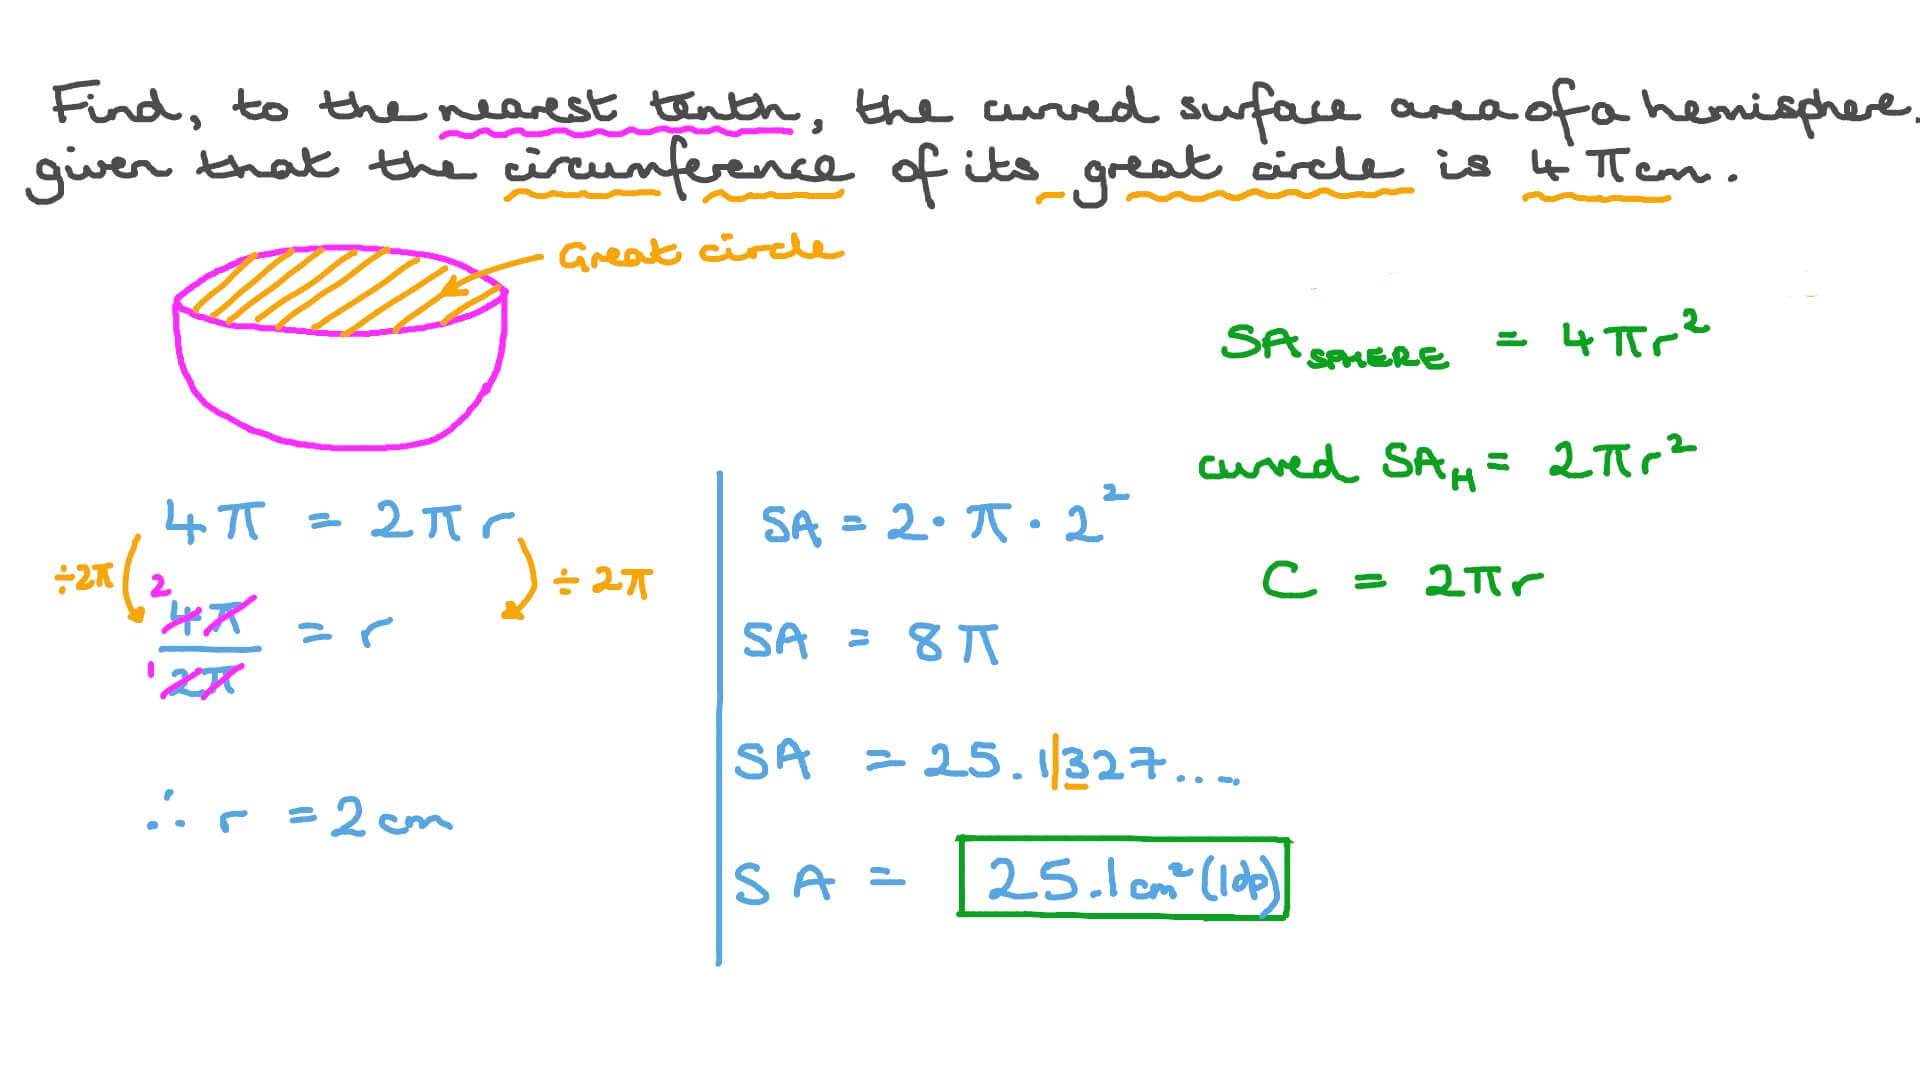 Find, to the nearest tenth, the curved surface area of a hemisphere,
given that the circumference of its great circle is 4πcm.
Great circle
SA SPHERE = 4πr²
curved SA H = 2πr²
C = 2πr
4π = 2πr
÷2π
÷2π
2
4π
1
2π
= r
∴ r = 2cm
SA = 2·π·2²
SA = 8π
SA = 25.1|327....
SA = 25.1cm²(1dp)